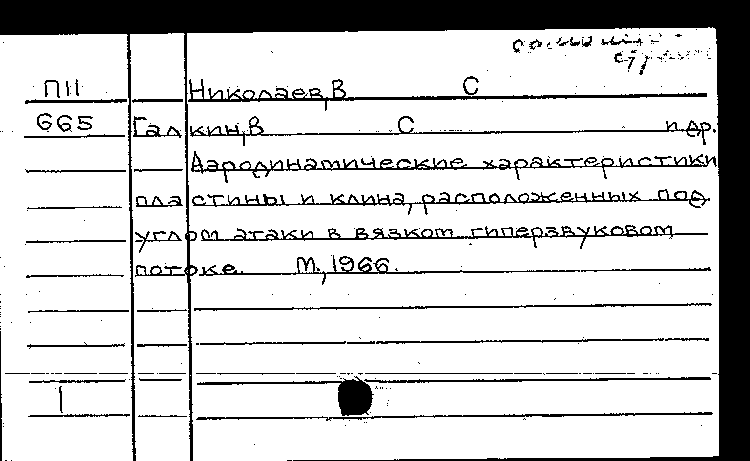 П11 Николаев,В С
665 Галкин,В С и др.
Аэродинамические характеристики
пластины и клина, расположенных под
углом атаки в вязком гиперзвуковом
потоке. М.,1966.
1